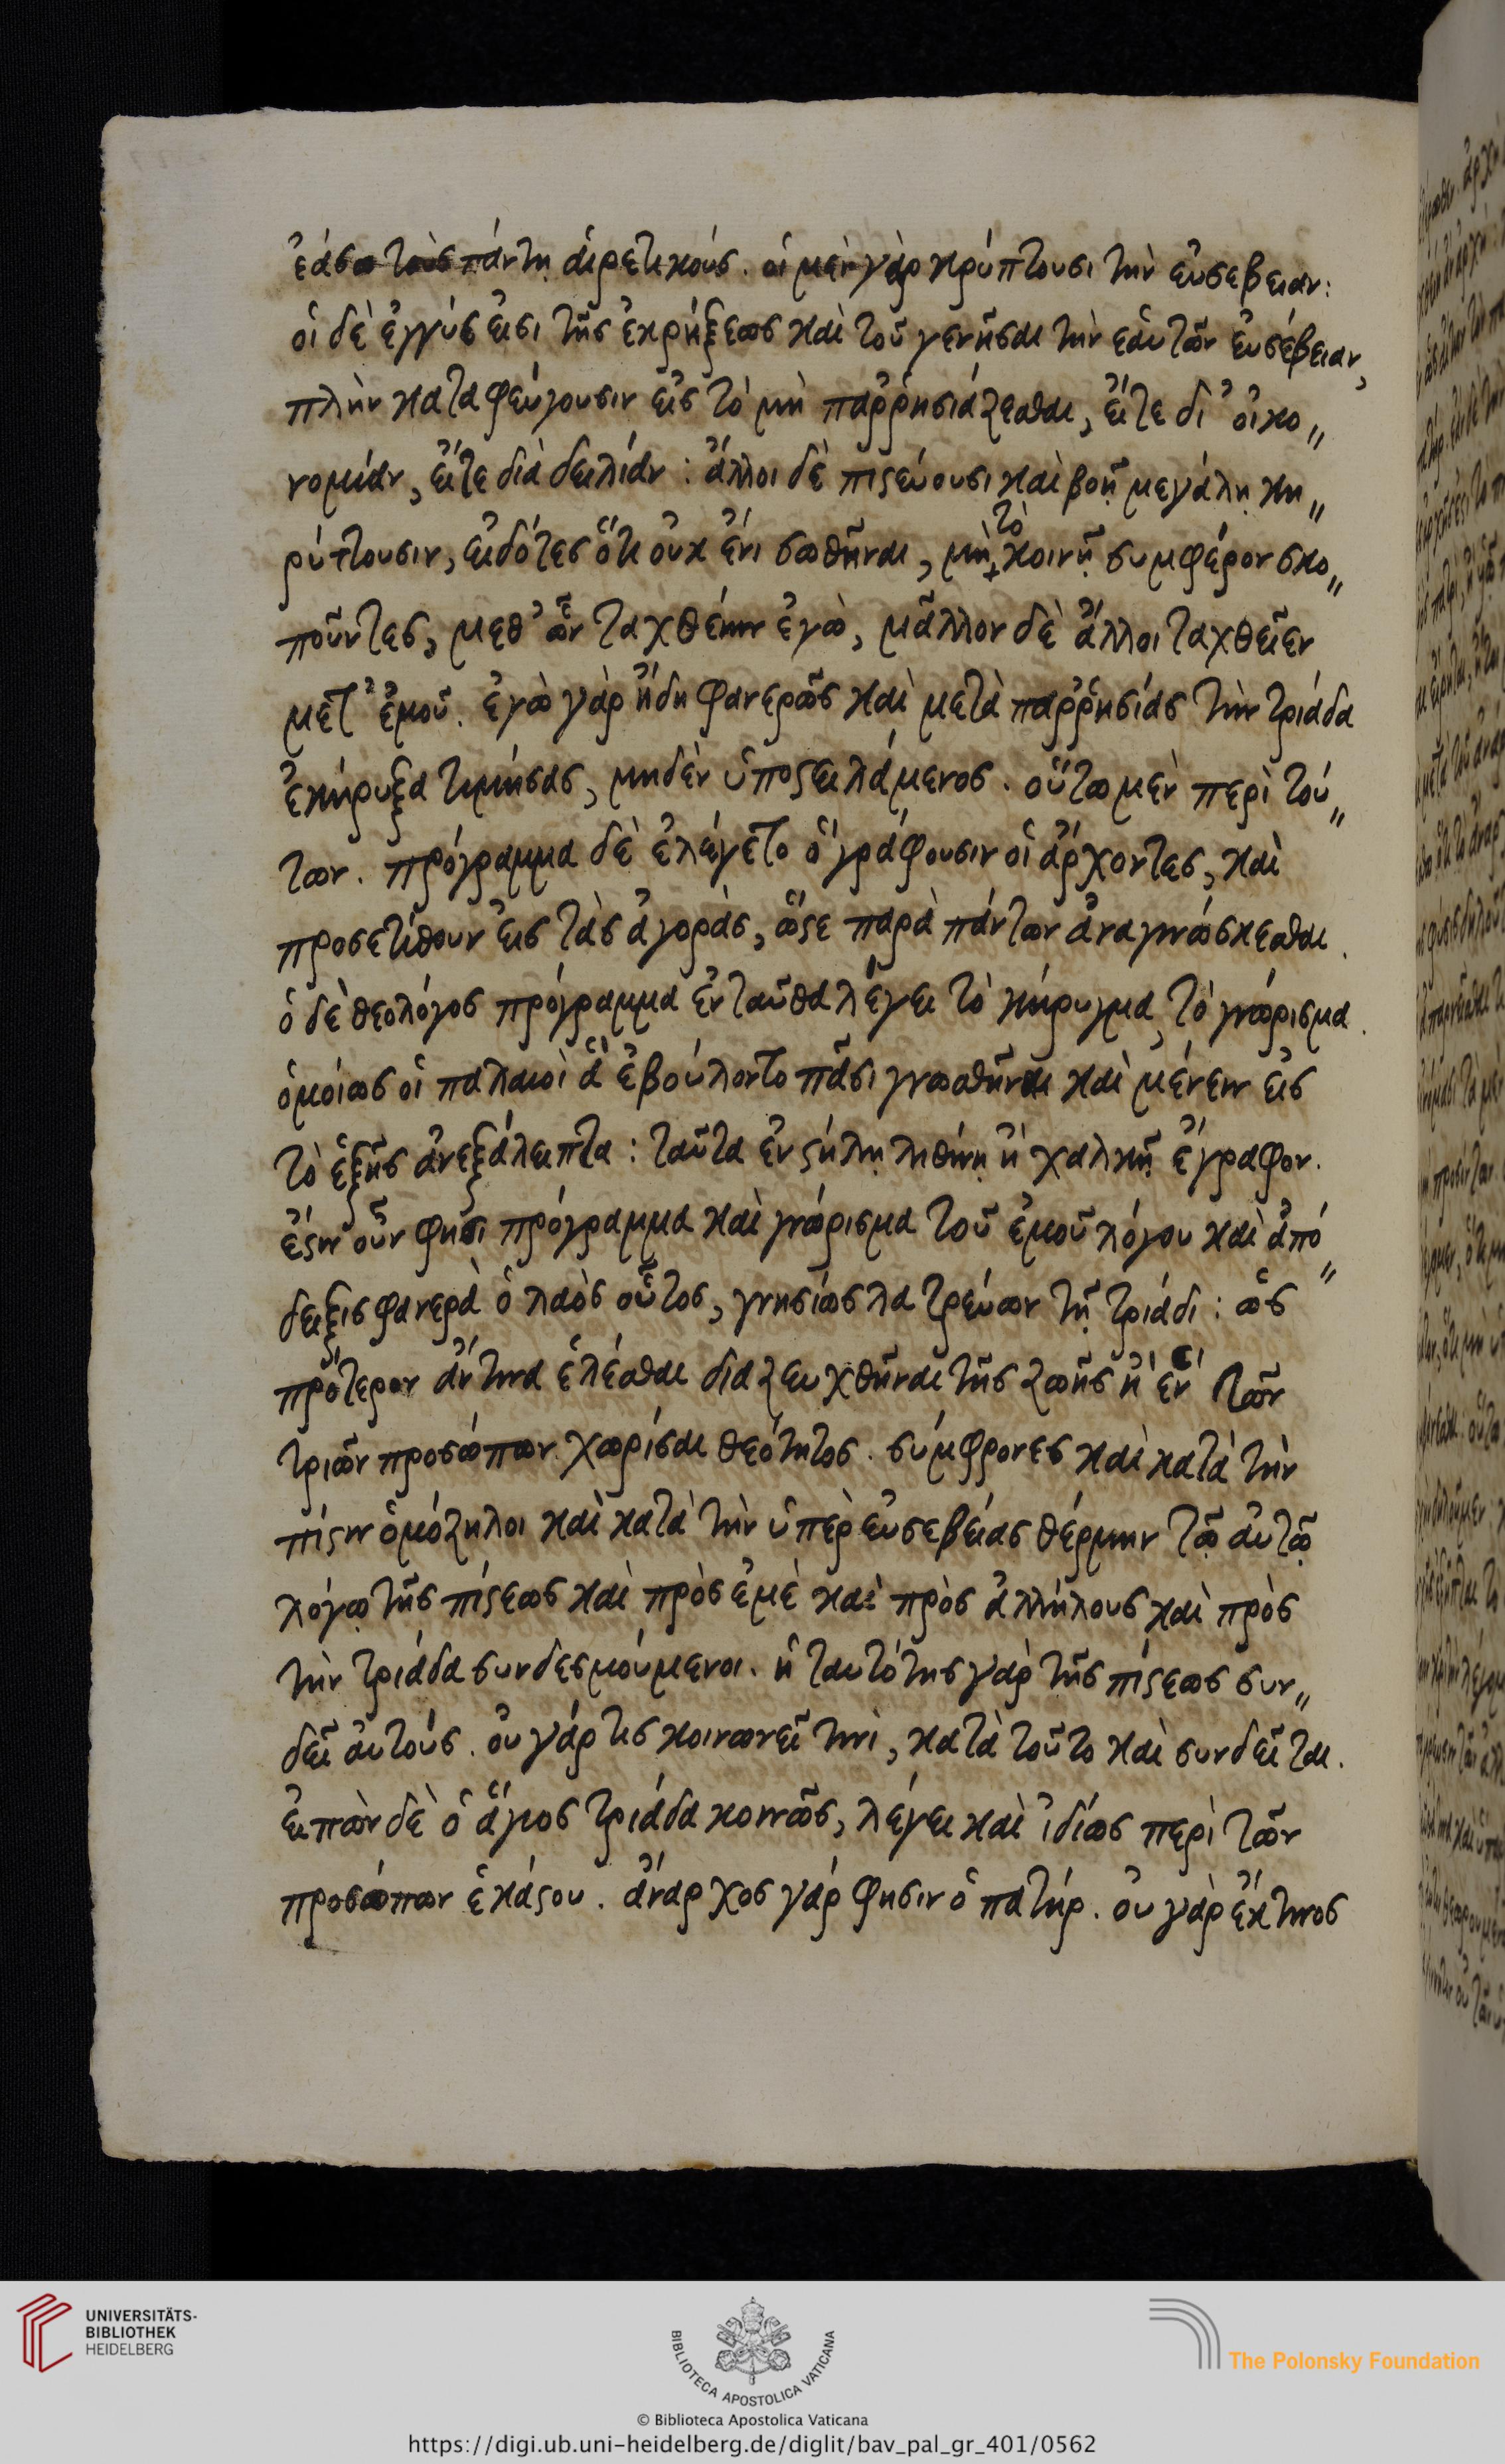 ἐάσω τοὺς πάντη αἱρετικούς. οἱ μὲν γὰρ κρύπτουσι τὴν εὐσεβειαν:
οἱ δὲ ἐγγύς εἰσι τῆς ἐκρήξεως καὶ τοῦ γενῆσαι τὴν ἑαυτῶν εὐσέβειαν,
πλὴν καταφεύγουσιν εἰς τὸ μὴ παῤῥησιάζεσθαι, εἴτε δι' οἰκο〃
νομίαν, εἴτε διὰ δειλίαν: ἄλλοι δὲ πιστεύουσι καὶ βοῇ μεγάλῃ κη〃
ρύττουσιν, εἰδότες ὅτι οὐκ ἔνι σωθῆναι, μὴ τὸ κοινῇ συμφέρον σκο〃
ποῦντες, μεθ' ὧν ταχθείην ἐγὼ, μᾶλλον δὲ ἄλλοι ταχθεῖεν
μετ' ἐμοῦ. ἐγὼ γὰρ ἤδη φανερῶς καὶ μετὰ παῤῥησίας τὴν τριάδα
ἐκήρυξα τιμήσας, μηδὲν ὑποστειλάμενος. οὕτω μὲν περὶ τού〃
των. πρόγραμμα δὲ ἐλέγετο ὃ γράφουσιν οἱ ἄρχοντες, καὶ
προσετίθουν εἰς τὰς ἀγορὰς, ὥστε παρὰ πάντων ἀναγινώσκεσθαι.
ὁ δὲ θεολόγος πρόγραμμα ἐνταῦθα λέγει τὸ κήρυγμα, τὸ γνώρισμα.
ὁμοίως οἱ παλαιοὶ ἃ ἐβούλοντο πᾶσι γνωσθῆναι καὶ μένειν εἰς
τὸ ἑξῆς ἀνεξάλειπτα: ταῦτα ἐν στήλῃ λιθίνῃ ἢ χαλκῇ ἔγραφον.
ἔστιν οὖν φησι πρόγραμμα καὶ γνώρισμα τοῦ ἐμοῦ λόγου καὶ ἀπό〃
δειξις φανερὰ ὁ λαὸς οὗτος, γνησίως λατρεύων τῇ τριάδι: ὡς
πρότερον ἄν τινα ἑλέσθαι διαζευχθῆναι τῆς ζωῆς ἢ ἓν τῶν
τριῶν προσώπων χωρίσαι θεότητος. σύμφρονες καὶ κατὰ τὴν
πίστιν ὁμόζηλοι καὶ κατὰ τὴν ὑπὲρ εὐσεβείας θέρμην τῷ αὐτῷ
λόγῳ τῆς πίστεως καὶ πρὸς ἐμὲ καὶ πρὸς ἀλλήλους καὶ πρὸς
τὴν τριάδα συνδεσμούμενοι. ἡ ταυτότης γὰρ τῆς πίστεως συν〃
δεῖ αὐτούς. οὐ γάρ τις κοινωνεῖ τινὶ, κατὰ τοῦτο καὶ συνδεῖται.
εἰπὼν δὲ ὁ ἅγιος τριάδα κοινῶς, λέγει καὶ ἰδίως περὶ τῶν
προσώπων ἑκάστου. ἄναρχος γάρ φησιν ὁ πατήρ. οὐ γὰρ ἔκ τινος
UNIVERSITÄTS-
BIBLIOTHEK
HEIDELBERG
BIBLIOTECA APOSTOLICA VATICANA
The Polonsky Foundation
© Biblioteca Apostolica Vaticana
https://digi.ub.uni-heidelberg.de/diglit/bav_pal_gr_401/0562